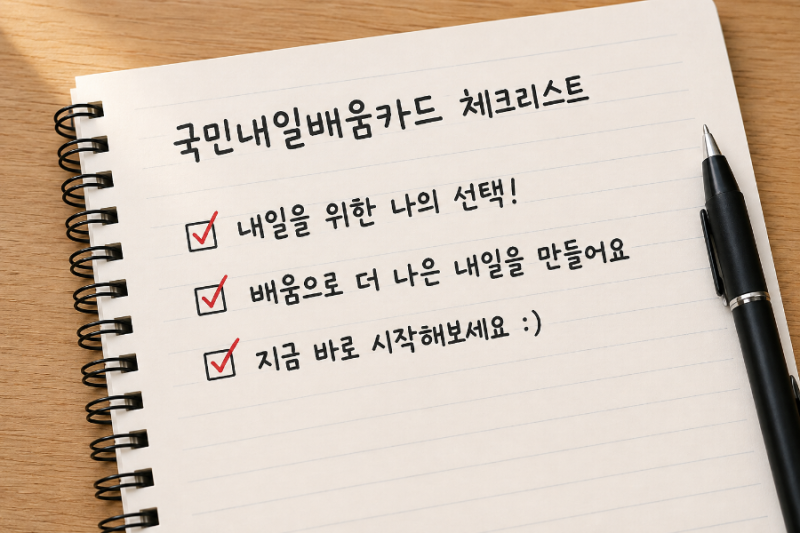 국민내일배움카드 체크리스트
내일을 위한 나의 선택!
배움으로 더 나은 내일을 만들어요
지금 바로 시작해보세요 :)